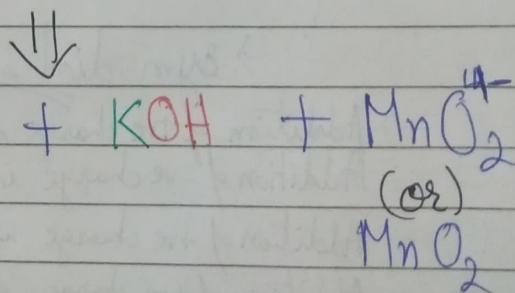 ⇓
+ KOH + MnO₂⁴⁻
(or)
MnO₂